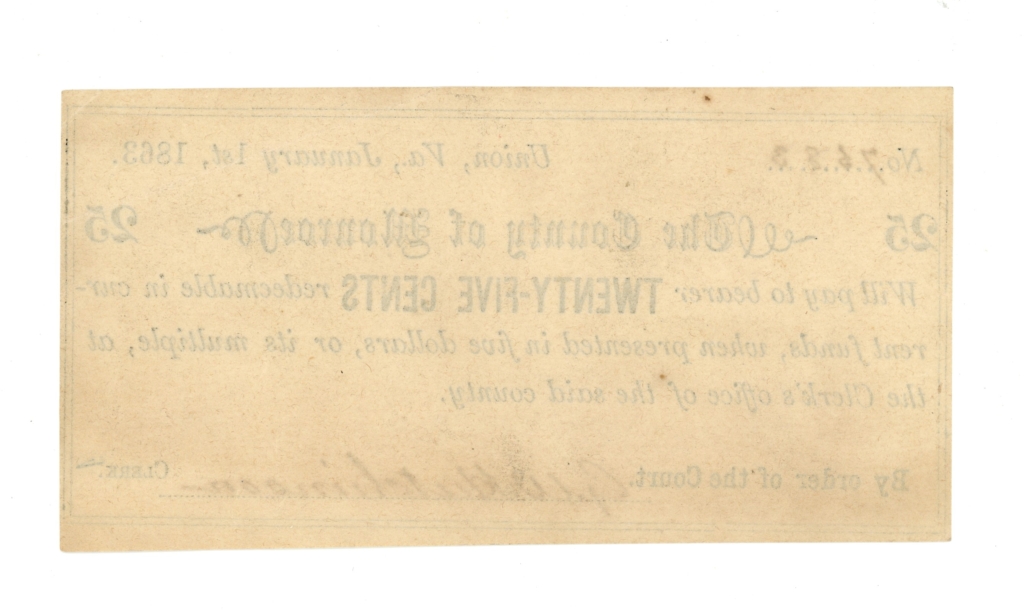 No. 7.4.2.3. Union, Va., January 1st, 1863.
25 The County of Monroe 25
Will pay to bearer TWENTY-FIVE CENTS redeemable in cur-
rent funds, when presented in five dollars, or its multiple, at
the Clerk's office of the said county.
By order of the Court. Hutchinson CLERK.